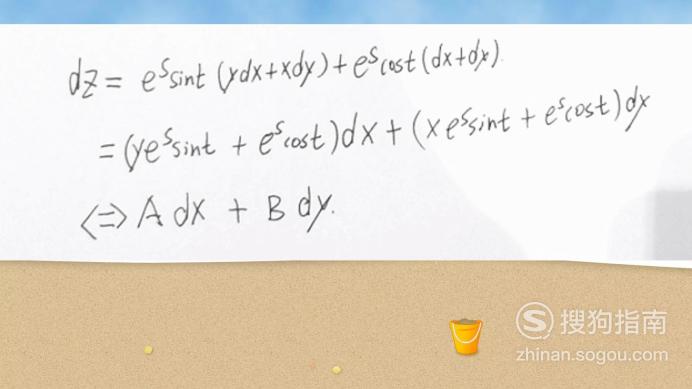 dz = e^s sint (ydx+xdy) + e^s cost (dx+dy).
= (ye^s sint + e^s cost)dx + (xe^s sint + e^s cost)dy
<=> A dx + B dy.
S 搜狗指南
zhinan.sogou.com